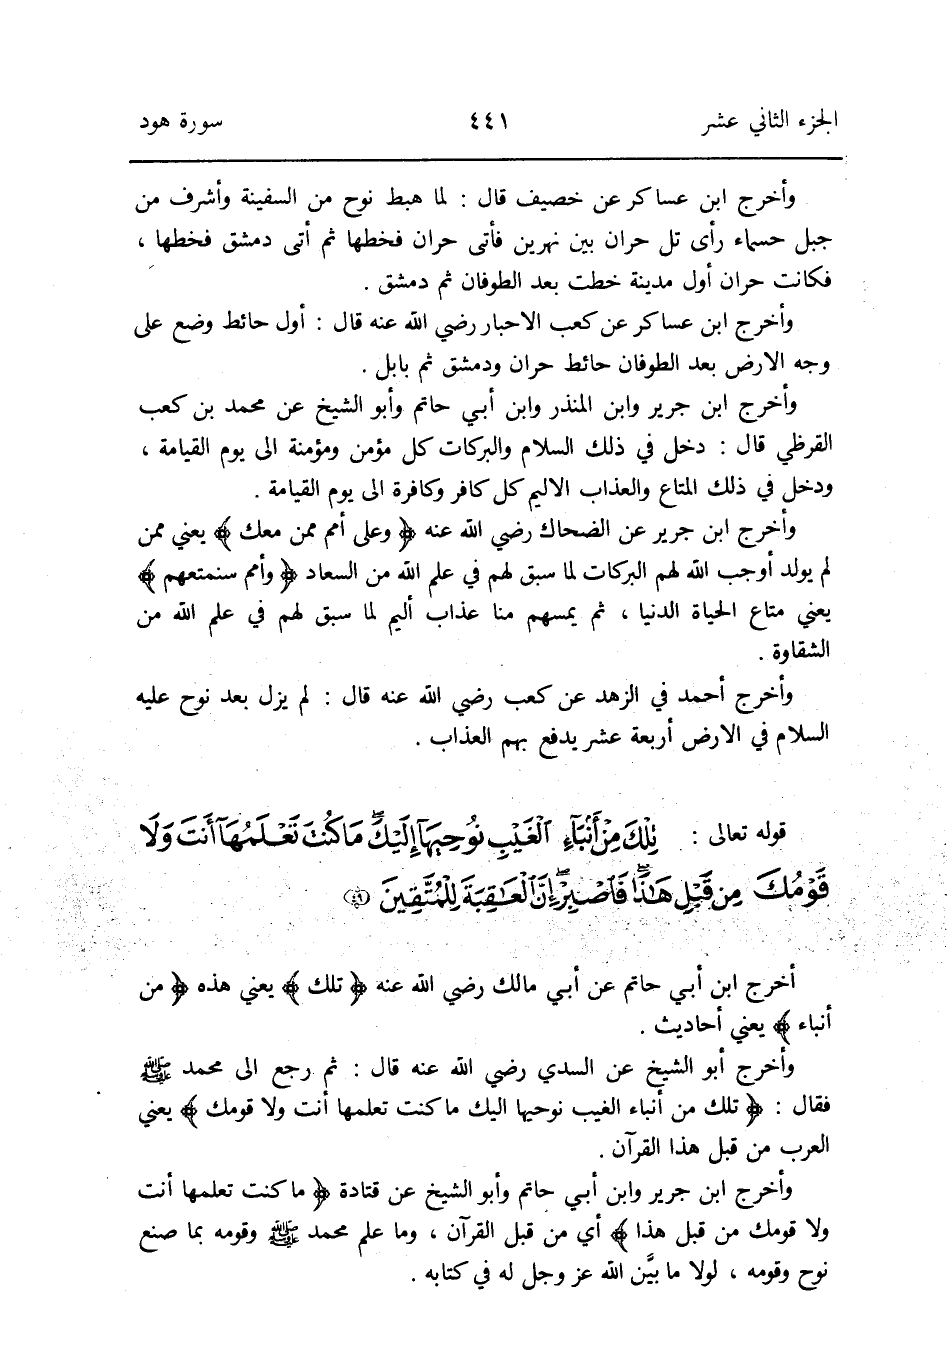 الجزء الثاني عشر ٤٤١ سورة هود
وأخرج ابن عساكر عن خصيف قال : لما هبط نوح من السفينة وأشرف من
جبل حسماء رأى تل حران بين نهرين فأتى حران فخطها ثم أتى دمشق فخطها ،
فكانت حران أول مدينة خطت بعد الطوفان ثم دمشق .
وأخرج ابن عساكر عن كعب الاحبار رضي الله عنه قال : أول حائط وضع على
وجه الارض بعد الطوفان حائط حران ودمشق ثم بابل .
وأخرج ابن جرير وابن المنذر وابن أبي حاتم وأبو الشيخ عن محمد بن كعب
القرظي قال : دخل في ذلك السلام والبركات كل مؤمن ومؤمنة الى يوم القيامة ،
ودخل في ذلك المتاع والعذاب الاليم كل كافر وكافرة الى يوم القيامة .
وأخرج ابن جرير عن الضحاك رضي الله عنه ﴿ وعلى أمم ممن معك ﴾ يعني ممن
لم يولد أوجب الله لهم البركات لما سبق لهم في علم الله من السعاد ﴿ وأمم سنمتعهم ﴾
يعني متاع الحياة الدنيا ، ثم يمسهم منا عذاب أليم لما سبق لهم في علم الله من
الشقاوة .
وأخرج أحمد في الزهد عن كعب رضي الله عنه قال : لم يزل بعد نوح عليه
السلام في الارض أربعة عشر يدفع بهم العذاب .
قوله تعالى : تِلْكَ مِنْ أَنۢبَآءِ ٱلْغَيْبِ نُوحِيهَآ إِلَيْكَ ۖ مَا كُنتَ تَعْلَمُهَآ أَنتَ وَلَا
قَوْمُكَ مِن قَبْلِ هَٰذَا ۖ فَٱصْبِرْ ۖ إِنَّ ٱلْعَٰقِبَةَ لِلْمُتَّقِينَ ﴿٤٩﴾
أخرج ابن أبي حاتم عن أبي مالك رضي الله عنه ﴿ تلك ﴾ يعني هذه ﴿ من
أنباء ﴾ يعني أحاديث .
وأخرج أبو الشيخ عن السدي رضي الله عنه قال : ثم رجع الى محمد ﷺ
فقال : ﴿ تلك من أنباء الغيب نوحيها اليك ما كنت تعلمها أنت ولا قومك ﴾ يعني
العرب من قبل هذا القرآن .
وأخرج ابن جرير وابن أبي حاتم وأبو الشيخ عن قتادة ﴿ ما كنت تعلمها أنت
ولا قومك من قبل هذا ﴾ أي من قبل القرآن ، وما علم محمد ﷺ وقومه بما صنع
نوح وقومه ، لولا ما بيَّن الله عز وجل له في كتابه .